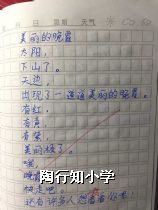 月 日 星期 天气
美丽的晚霞
太阳，
下山了。
天边，
出现了一道道美丽的晚霞。
有红，
有黄，
有紫，
美丽极了。
嘿，
晚霞
快走吧。
还有许多人想看看你
陶行知小学